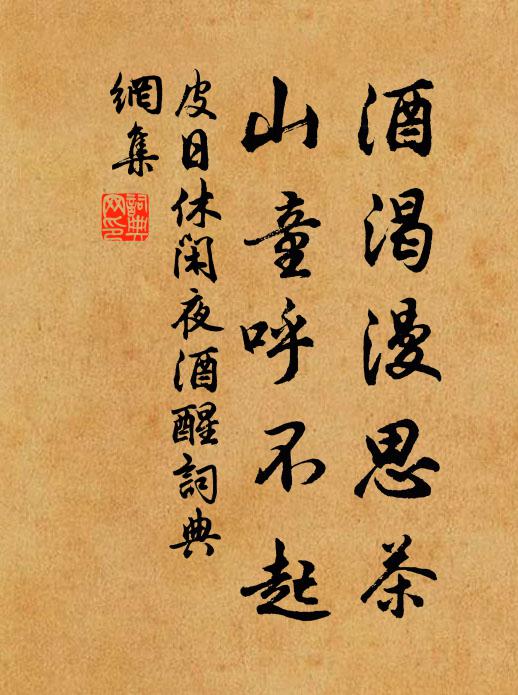 酒渴漫思茶
山童呼不起
皮日休闲夜酒醒詞典
網集
詞典
网印